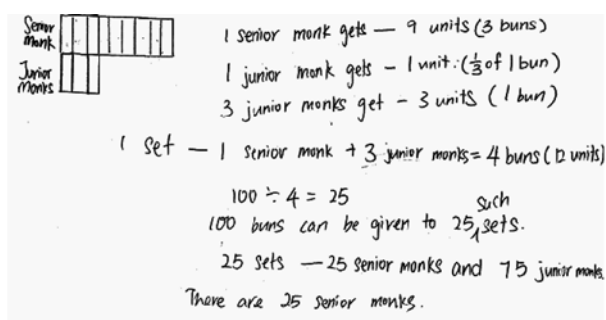 Senior
Monk
Junior
Monks
1 senior monk gets — 9 units (3 buns)
1 junior monk gets - 1 unit. (⅓ of 1 bun)
3 junior monks get - 3 units (1 bun)
1 set — 1 senior monk + 3 junior monks = 4 buns (12 units)
100 ÷ 4 = 25
100 buns can be given to 25 such sets.
25 sets — 25 senior monks and 75 junior monks.
There are 25 senior monks.